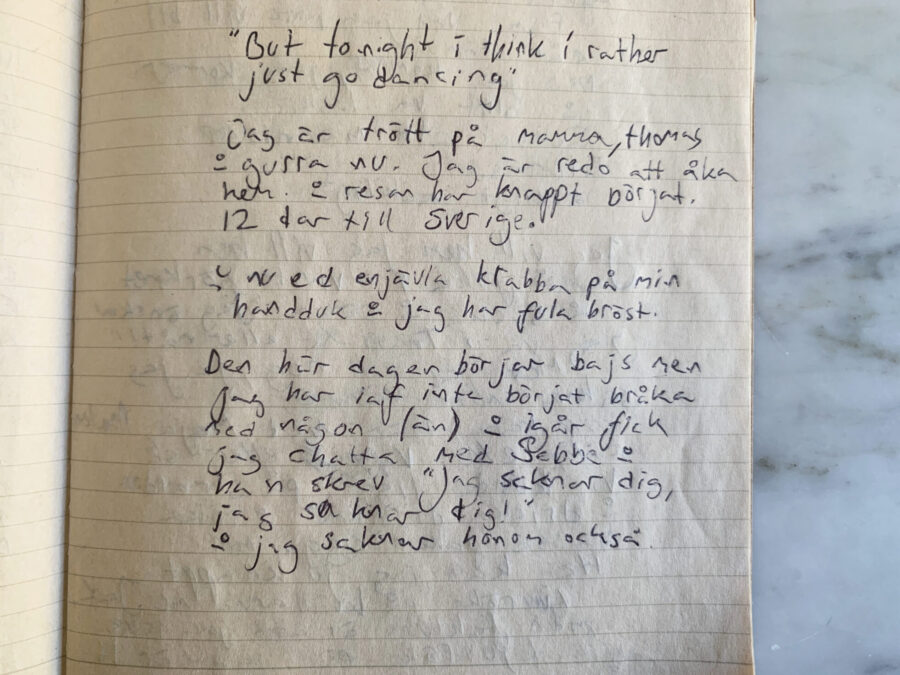 "But tonight i think i rather
just go dancing"
Jag är trött på mamma, thomas
å gurra nu. Jag är redo att åka
hem. å resan har knappt börjat.
12 dar till Sverige.
nu e d enjävla krabba på min
handduk å jag har fula bröst.
Den här dagen börjar bajs men
jag har iaf inte börjat bråka
med någon (än) å igår fick
jag chatta med Sebbe å
han skrev "Jag saknar dig,
jag saknar dig!"
å jag saknar honom också.